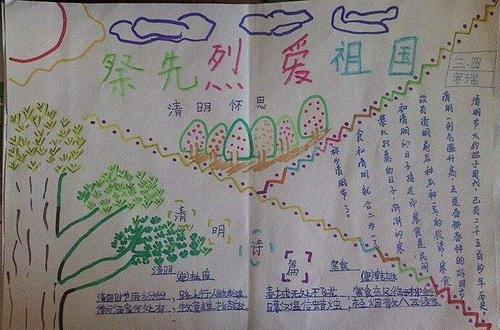 祭先烈 爱祖国
三、四
宋瑞
清明怀思
清明节大约始于周代，已有二千五百多年历史。
清明一到气温升高，正是春耕春种的
故有清明前后种瓜种豆的农谚，寒
和清明的日子接近，而寒食是民间
禁火扫墓的日子，渐渐的寒
食和清明就合二为一了
清明
诗
篇
清明 (唐)杜牧
清明时节雨纷纷，路上行人欲断魂
借问酒家何处有，牧童遥指杏花
寒食
春城无处不飞花，寒食东风御柳斜
日暮汉宫传蜡烛，轻烟散入五侯家